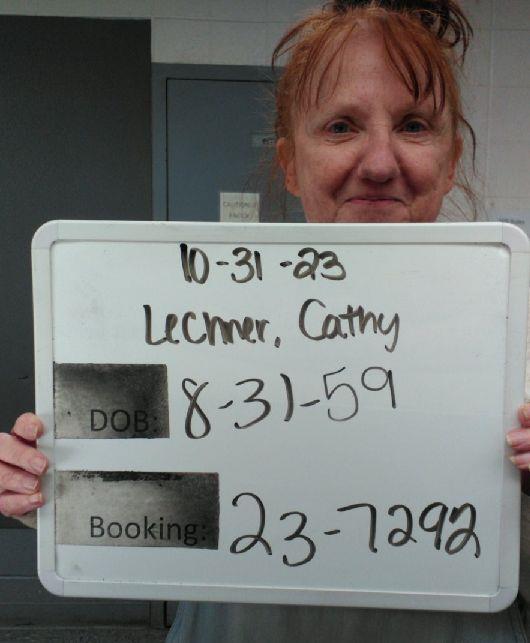 10-31-23
Lechner, Cathy
DOB: 8-31-59
Booking: 23-7292